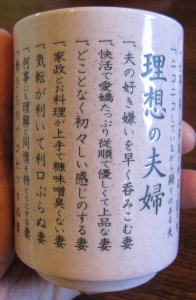 ニコニコして
ながら頼りのある夫
理想の夫婦
一、夫の好き嫌いを早く呑みこむ妻
一、快活で愛嬌たっぷり従順で優しくて上品な妻
一、どことなく初々しい感じのする妻
一、家政とお料理上手で糠味噌臭くない妻
一、気転が利いて利口ぶらぬ妻
一、何事にも理解と同情を持とうとする妻